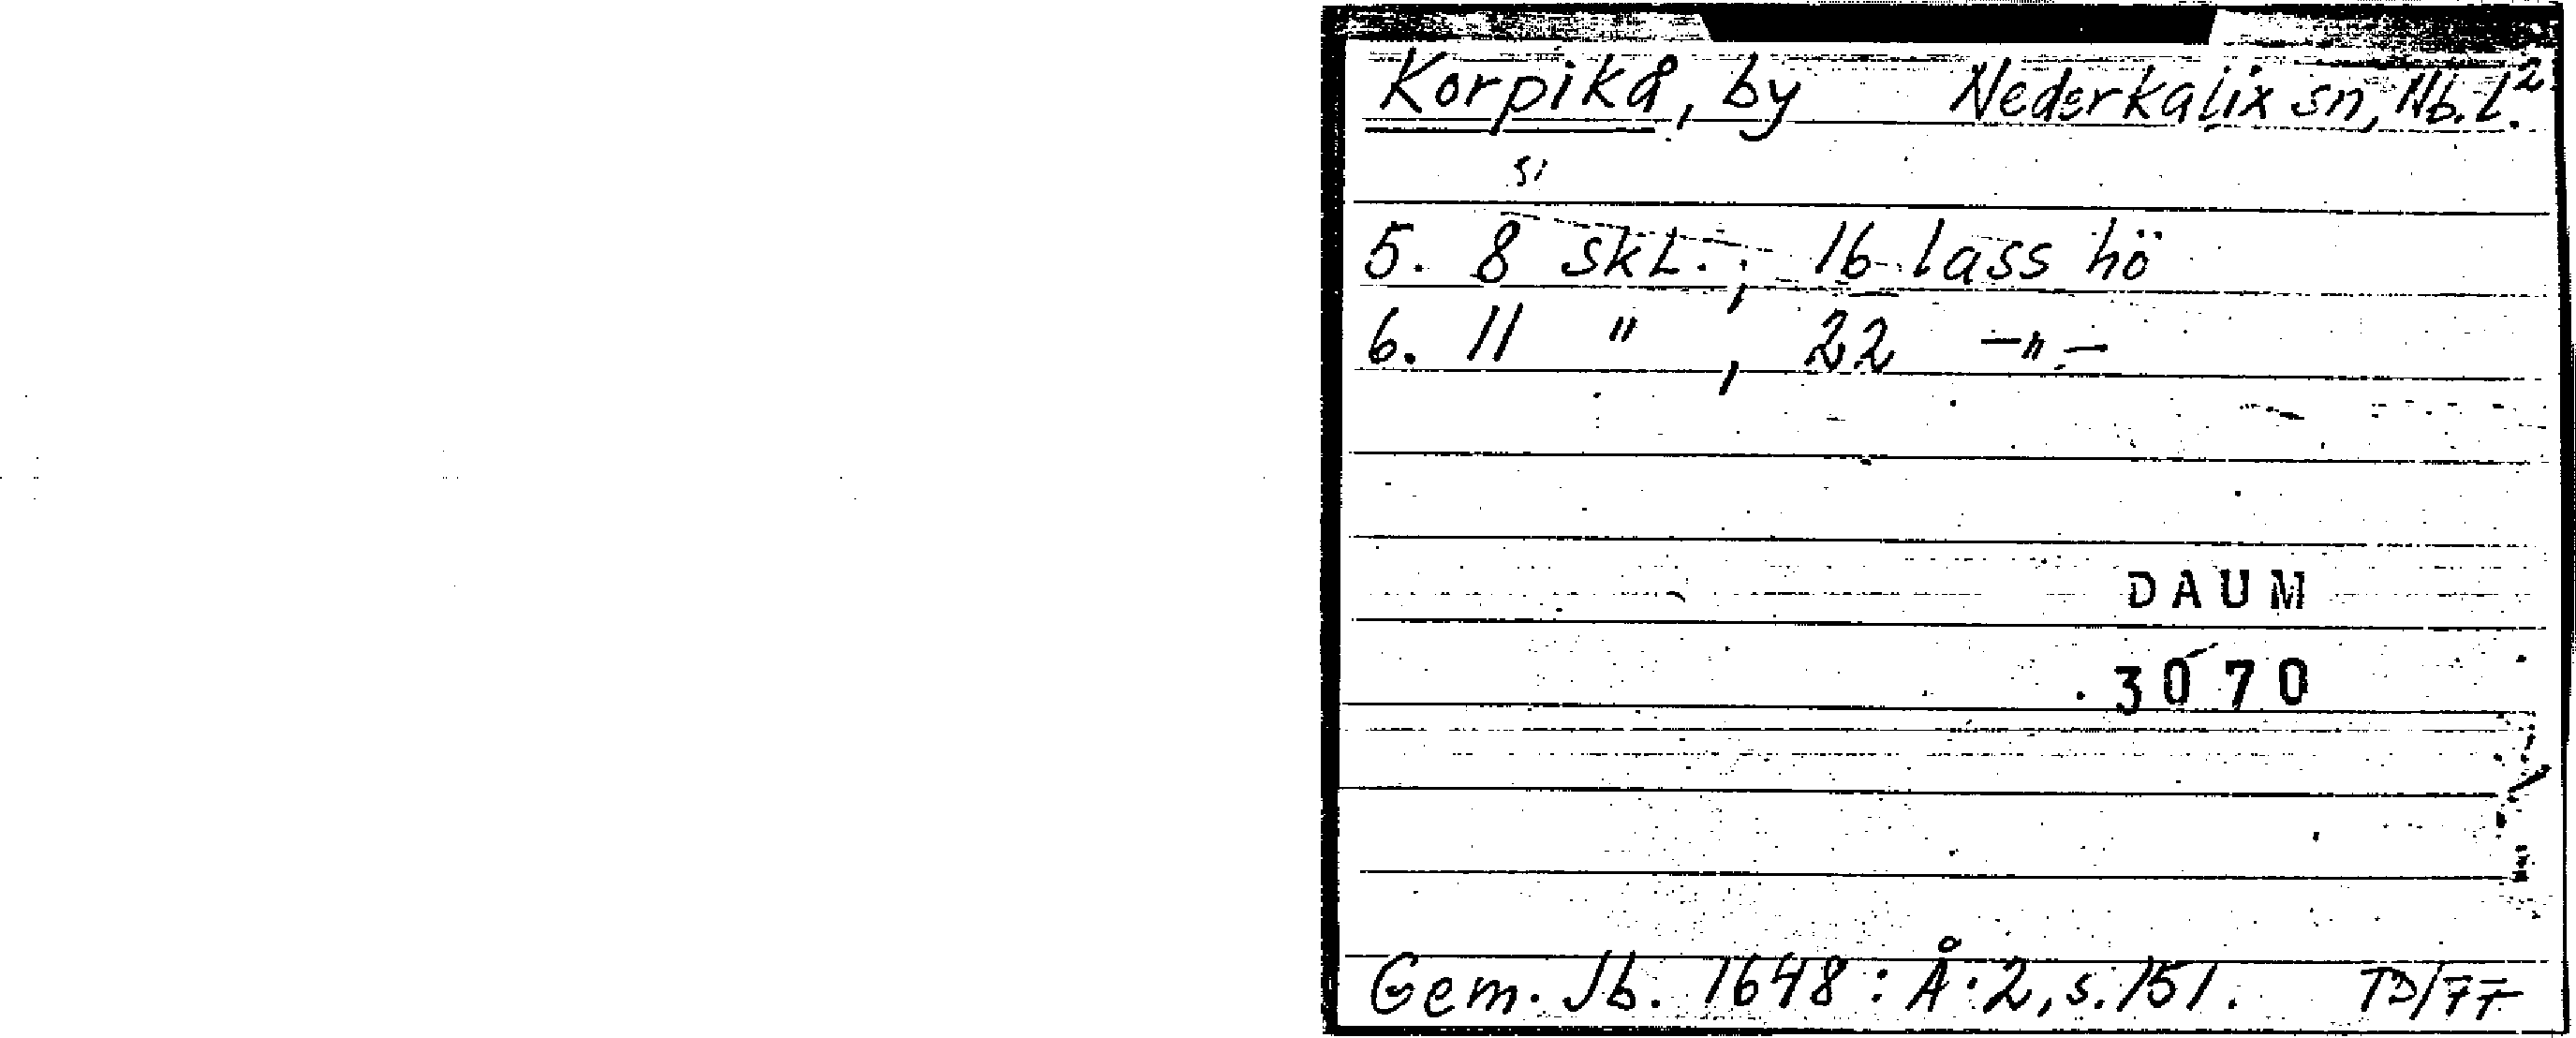 Korpikå, by Nederkalix sn, Nb. l. 2
5. 8 skl., 16 lass hö
6. 11 " , 22 -"-
DAUM
3070
Gem. Jb. 1648: Å:2, s. 151. TD/77